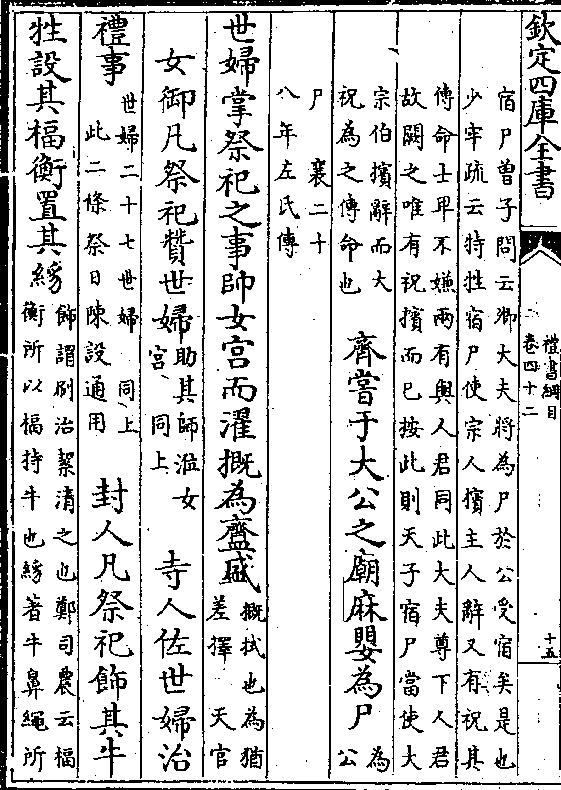 欽定四庫全書
禮書綱目
卷四十二
十五
宿尸曾子問云卿大夫將為尸於公受宿矣是也
少牢疏云特牲宿尸使宗人擯主人辭又有祝其
傳命士卑不嫌兩有與人君同此大夫尊下人君
故闕之唯有祝擯而已按此則天子宿尸當使大
宗伯擯辭而大
祝為之傳命也
齊嘗于大公之廟麻嬰為尸
為
公
尸　襄二十
八年左氏傳
世婦掌祭祀之事帥女宮而濯摡為齍盛
摡拭也為猶
差擇　天官
女御凡祭祀贊世婦
助其帥涖女
宮　同上
寺人佐世婦治
禮事
世婦二十七世婦　同上
此二條祭日陳設通用
封人凡祭祀飾其牛
牲設其楅衡置其絼
飾謂刷治絜清之也鄭司農云楅
衡所以楅持牛也絼著牛鼻繩所